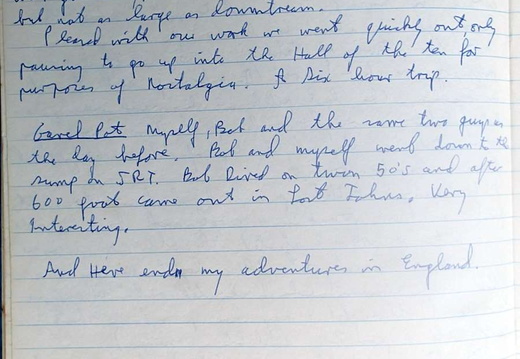 but not as large as downstream.
Pleased with our work we went quickly out, only
pausing to go up into the Hall of the ten for
purposes of Nostalgia. A Six hour trip.
Gavel Pot Myself, Bob and the same two guys as
the day before. Bob and myself went down to the
sump in SRT. Bob Dived on twin 50's and after
600 foot came out in Lost Johns. Very
Interesting.
And Here ends my adventures in England.